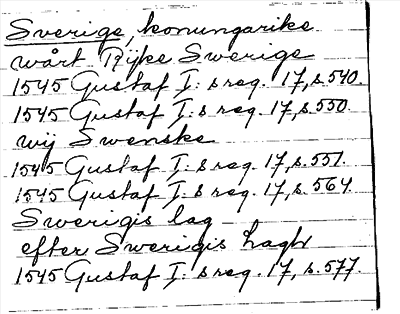 Sverige, konungarike
wårt Rijke Swerige
1545 Gustaf I:s reg. 17, s. 540.
1545 Gustaf I:s reg. 17, s. 550.
wij Swenske
1545 Gustaf I:s reg. 17, s. 551.
1545 Gustaf I:s reg. 17, s. 564.
Swerigis lag
efter Swerigis Lagh
1545 Gustaf I:s reg. 17, s. 577.